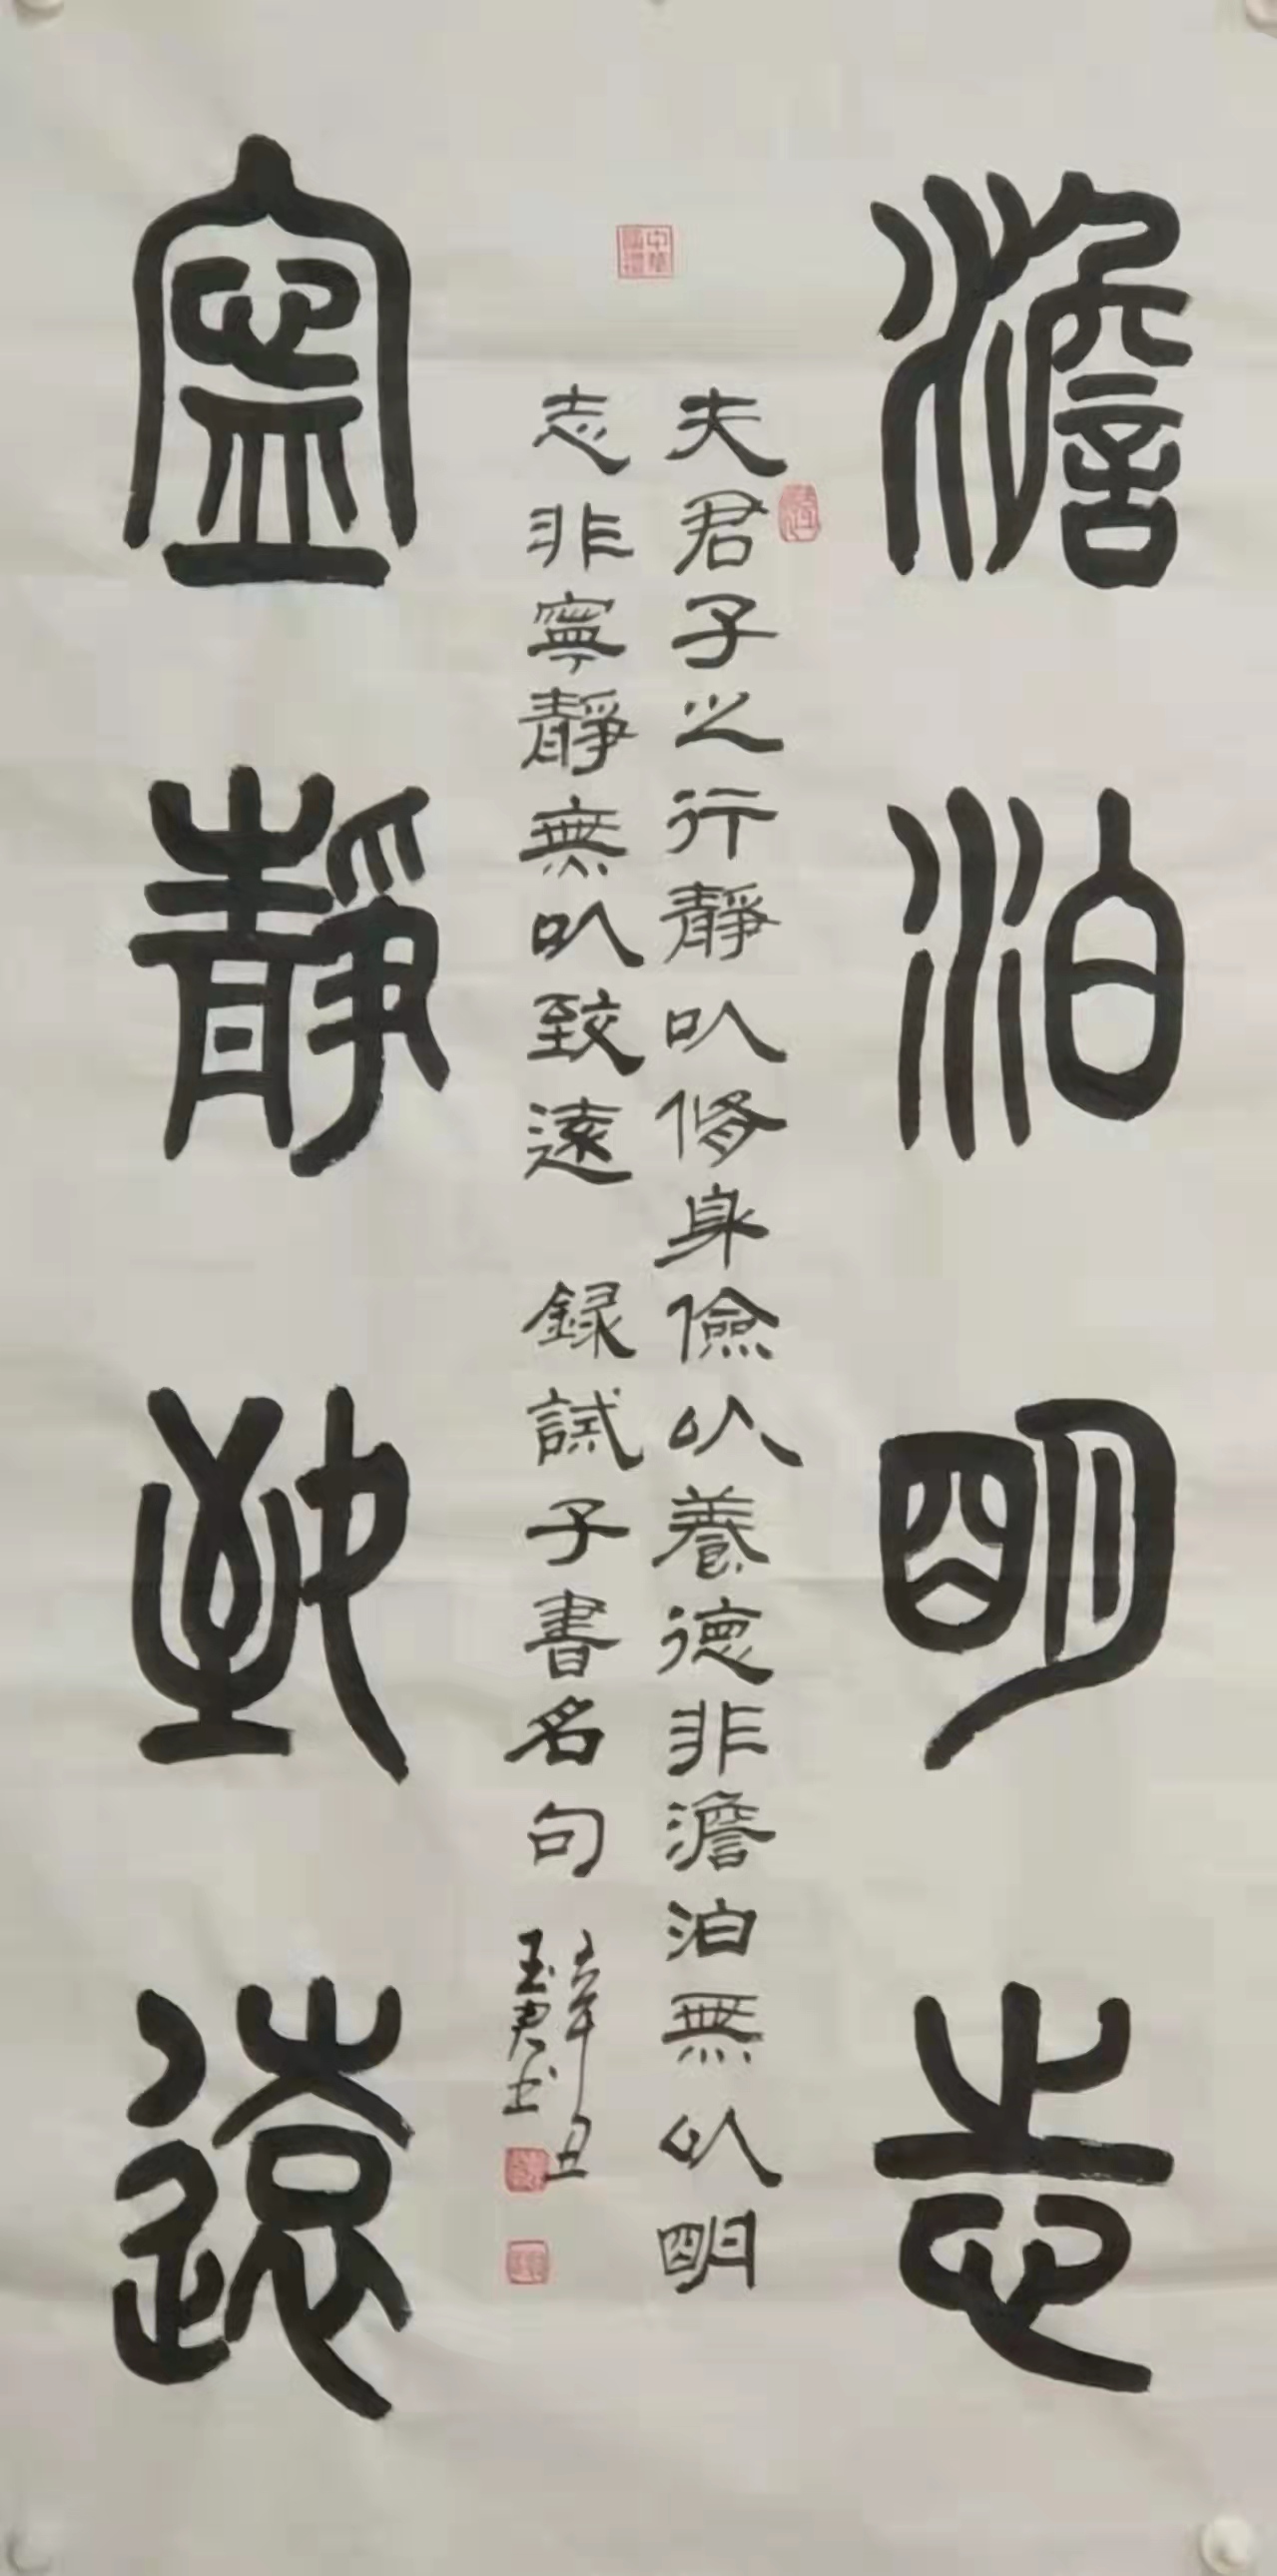 澹泊明志
夫君子之行靜以脩身儉以養德非澹泊無以明
志非寧靜無以致遠 録試子書名句
辛丑
玉君书
寧靜致遠